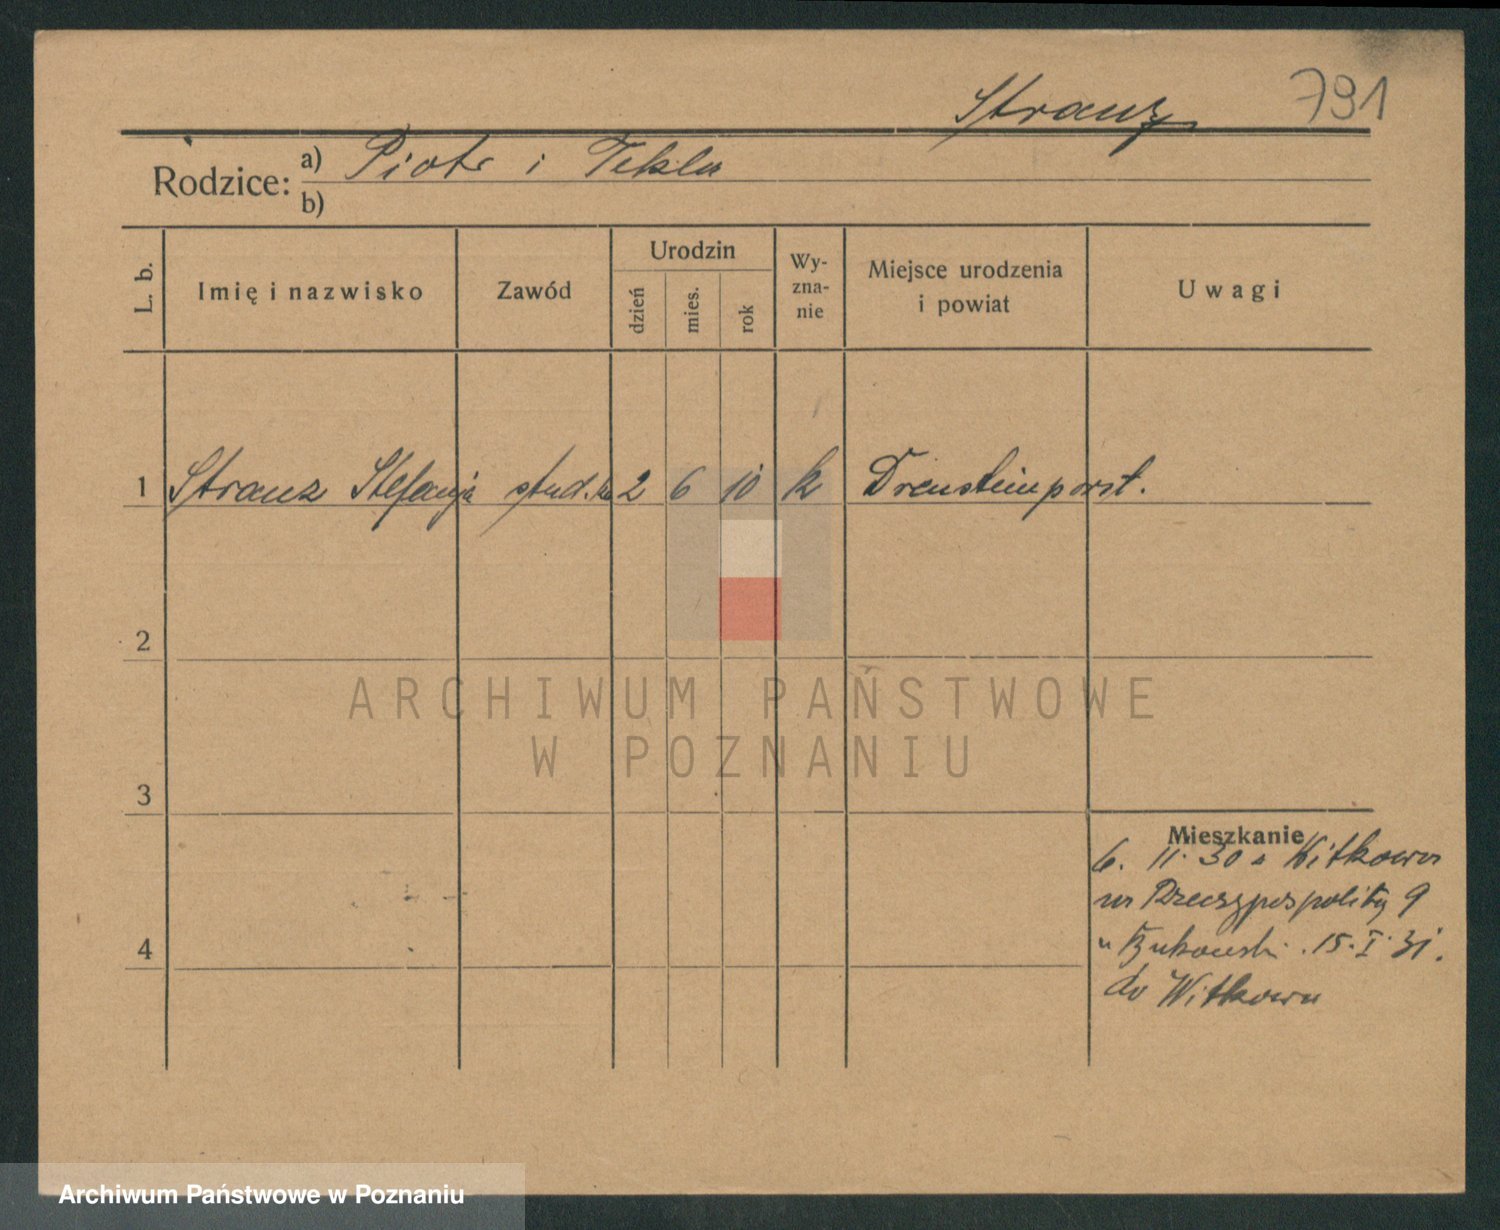 Stranz 791
Rodzice: a) Piotr i Tekla
b)
L. b. Imię i nazwisko Zawód Urodzin dzień mies. rok Wy-zna-nie Miejsce urodzenia i powiat Uwagi
1 Stranz Stefanja stud. 2 6 10 k Drensteinporst.
2
3
4
Mieszkanie
6. 11. 30 z Witkowa
ul Rzeczypospolitej 9
u Żukowski . 15. I. 31.
do Witkowa
ARCHIWUM PAŃSTWOWE
W POZNANIU
Archiwum Państwowe w Poznaniu